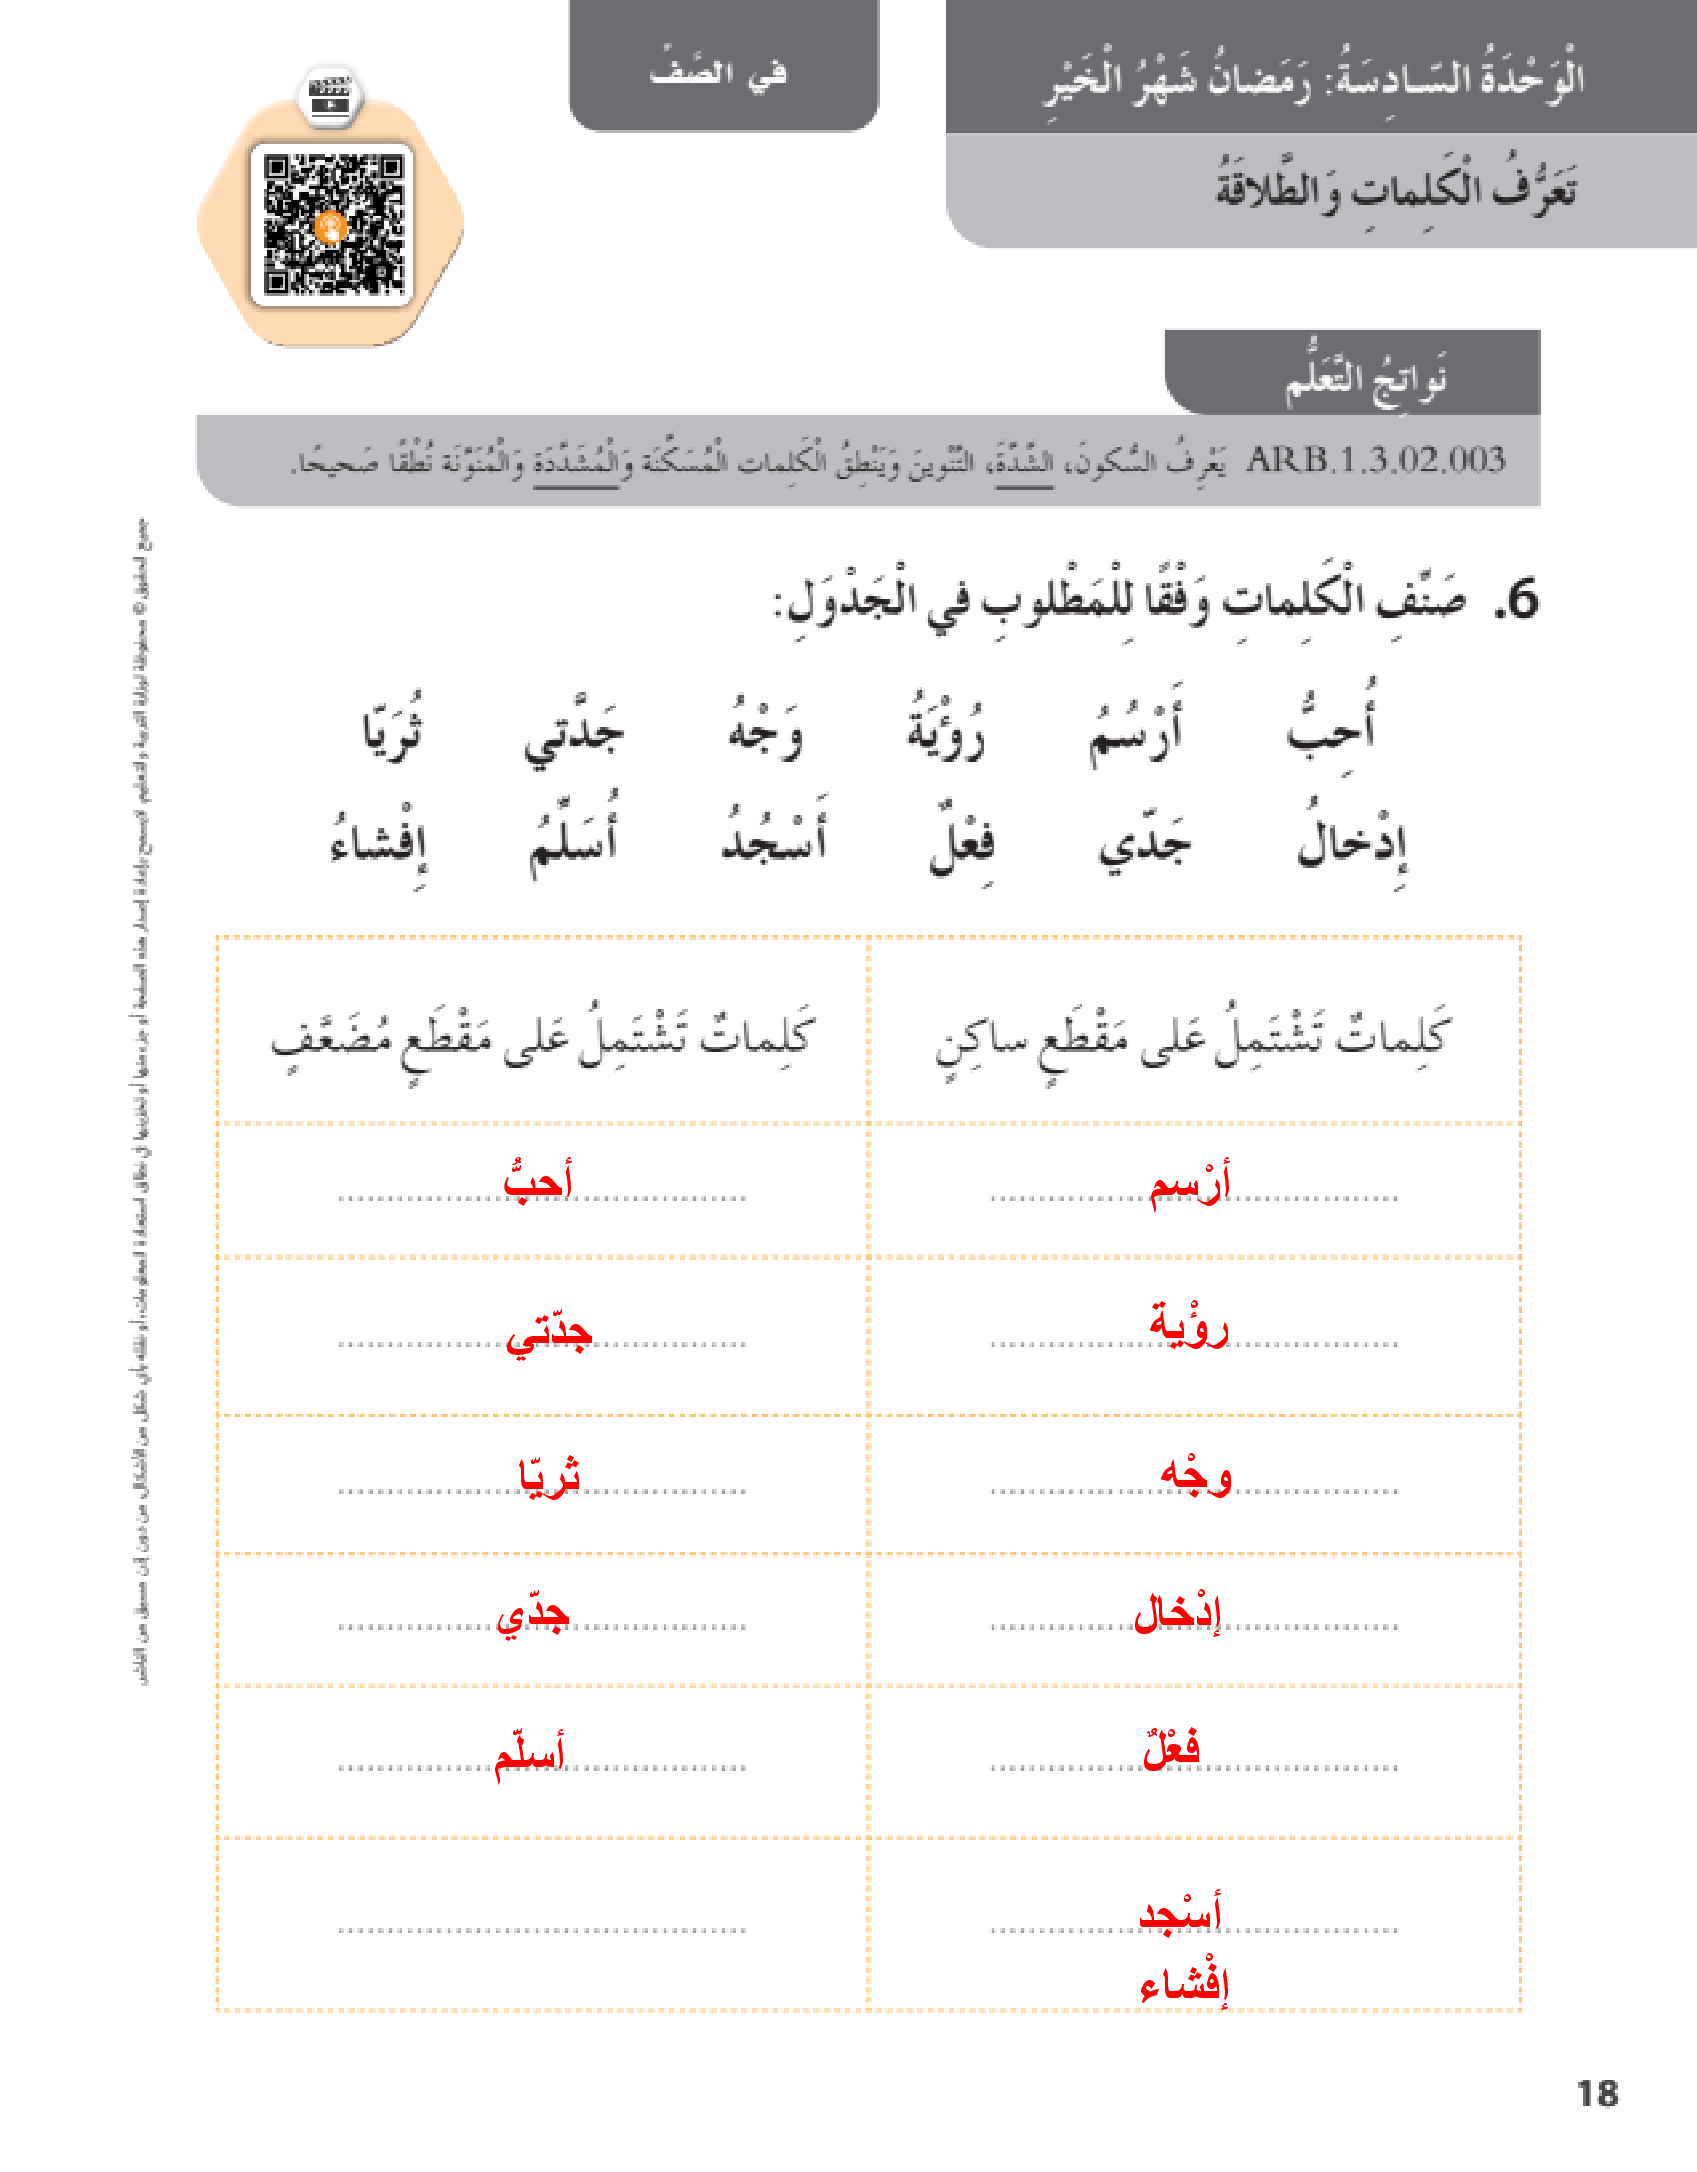 الْوَحْدَةُ السّادِسَةُ: رَمَضانُ شَهْرُ الْخَيْرِ
في الصَّفِّ
تَعَرُّفُ الْكَلِماتِ وَالطَّلاقَةُ
نَواتِجُ التَّعَلُّمِ
ARB.1.3.02.003 يَعْرِفُ السُّكونَ، الشَّدَّةَ، التَّنْوينَ وَيَنْطِقُ الْكَلِمات الْمُسَكَّنَة وَالْمُشَدَّدَة وَالْمُنَوَّنَة نُطْقًا صَحيحًا.
6. صَنِّفِ الْكَلِماتِ وَفْقًا لِلْمَطْلوبِ في الْجَدْوَلِ:
أُحِبُّ أَرْسُمُ رُؤْيَةُ وَجْهُ جَدَّتي ثُرَيّا
إِدْخالُ جَدّي فِعْلٌ أَسْجُدُ أُسَلِّمُ إِفْشاءُ
كَلِماتٌ تَشْتَمِلُ عَلى مَقْطَعٍ ساكِنٍ كَلِماتٌ تَشْتَمِلُ عَلى مَقْطَعٍ مُضَعَّفٍ
أرْسم أحبُّ
رؤْية جدّتي
وجْه ثريّا
إدْخال جدّي
فعْلٌ أسلّم
أسْجد
إفْشاء
جميع الحقوق © محفوظة لوزارة التربية والتعليم. لا يسمح بإعادة إصدار هذه الصفحة أو جزء منها أو تخزينها في نطاق استعادة المعلومات، أو نقله بأي شكل من الأشكال من دون إذن مسبق من الناشر.
18